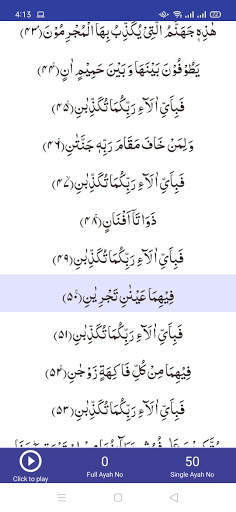 4:13
هٰذِهٖ جَهَنَّمُ الَّتِیْ یُكَذِّبُ بِهَا الْمُجْرِمُوْنَ(۴۳)
یَطُوْفُوْنَ بَیْنَهَا وَ بَیْنَ حَمِیْمٍ اٰنٍ(۴۴)
فَبِاَیِّ اٰلَآءِ رَبِّكُمَا تُكَذِّبٰنِ(۴۵)
وَ لِمَنْ خَافَ مَقَامَ رَبِّهٖ جَنَّتٰنِ(۴۶)
فَبِاَیِّ اٰلَآءِ رَبِّكُمَا تُكَذِّبٰنِ(۴۷)
ذَوَاتَاۤ اَفْنَانٍ(۴۸)
فَبِاَیِّ اٰلَآءِ رَبِّكُمَا تُكَذِّبٰنِ(۴۹)
فِیْهِمَا عَیْنٰنِ تَجْرِیٰنِ(۵۰)
فَبِاَیِّ اٰلَآءِ رَبِّكُمَا تُكَذِّبٰنِ(۵۱)
فِیْهِمَا مِنْ كُلِّ فَاكِهَةٍ زَوْجٰنِ(۵۲)
فَبِاَیِّ اٰلَآءِ رَبِّكُمَا تُكَذِّبٰنِ(۵۳)
0 50
Click to play Full Ayah No Single Ayah No